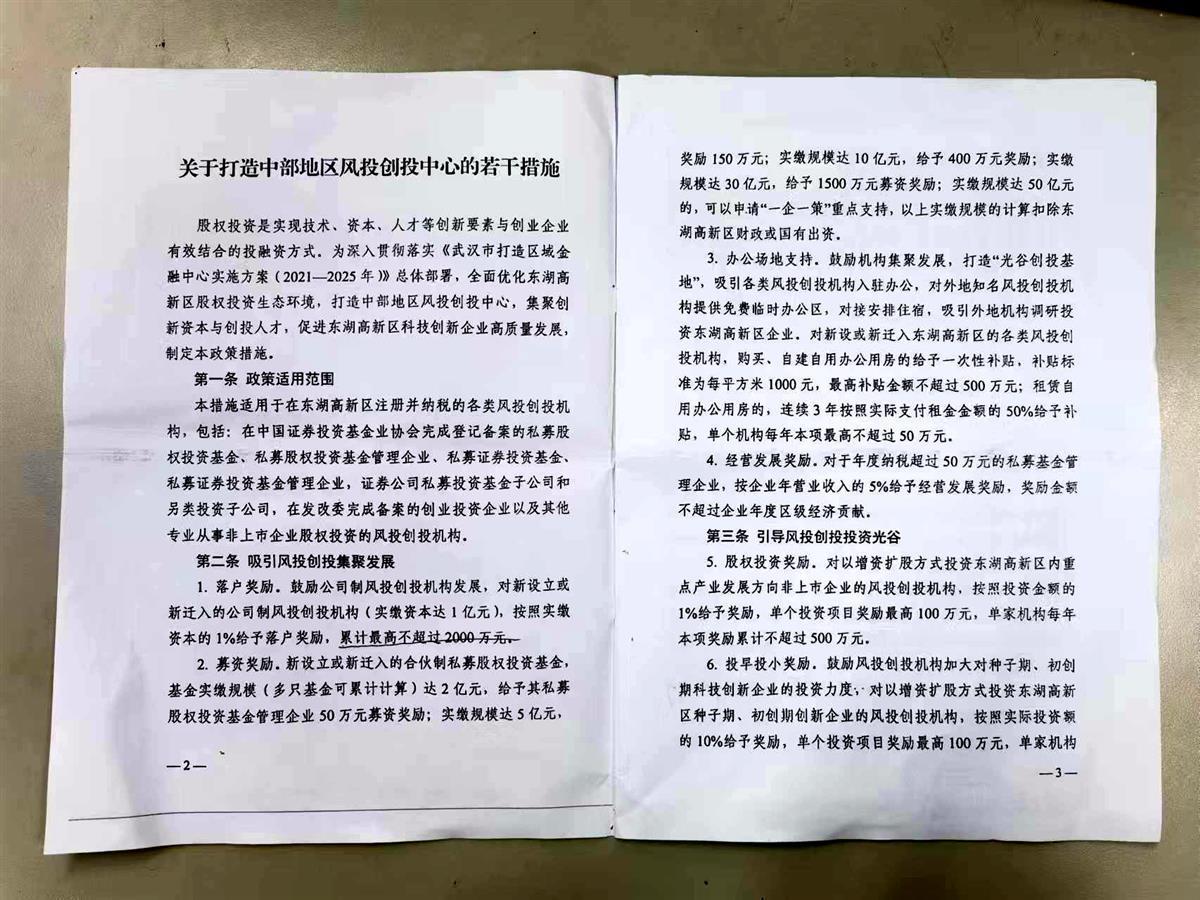 关于打造中部地区风投创投中心的若干措施
股权投资是实现技术、资本、人才等创新要素与创业企业
有效结合的投融资方式。为深入贯彻落实《武汉市打造区域金
融中心实施方案（2021—2025年）》总体部署，全面优化东湖高
新区股权投资生态环境，打造中部地区风投创投中心，集聚创
新资本与创投人才，促进东湖高新区科技创新企业高质量发展，
制定本政策措施。
第一条 政策适用范围
本措施适用于在东湖高新区注册并纳税的各类风投创投机
构，包括：在中国证券投资基金业协会完成登记备案的私募股
权投资基金、私募股权投资基金管理企业、私募证券投资基金、
私募证券投资基金管理企业，证券公司私募投资基金子公司和
另类投资子公司，在发改委完成备案的创业投资企业以及其他
专业从事非上市企业股权投资的风投创投机构。
第二条 吸引风投创投集聚发展
1. 落户奖励。鼓励公司制风投创投机构发展，对新设立或
新迁入的公司制风投创投机构（实缴资本达1亿元），按照实缴
资本的1%给予落户奖励，累计最高不超过2000万元。
2. 募资奖励。新设立或新迁入的合伙制私募股权投资基金，
基金实缴规模（多只基金可累计计算）达2亿元，给予其私募
股权投资基金管理企业50万元募资奖励；实缴规模达5亿元，
—2—
奖励150万元；实缴规模达10亿元，给予400万元奖励；实缴
规模达30亿元，给予1500万元募资奖励；实缴规模达50亿元
的，可以申请“一企一策”重点支持，以上实缴规模的计算扣除东
湖高新区财政或国有出资。
3. 办公场地支持。鼓励机构集聚发展，打造“光谷创投基
地”，吸引各类风投创投机构入驻办公，对外地知名风投创投机
构提供免费临时办公区，对接安排住宿，吸引外地机构调研投
资东湖高新区企业。对新设或新迁入东湖高新区的各类风投创
投机构，购买、自建自用办公用房的给予一次性补贴，补贴标
准为每平方米1000元，最高补贴金额不超过500万元；租赁自
用办公用房的，连续3年按照实际支付租金金额的50%给予补
贴，单个机构每年本项最高不超过50万元。
4. 经营发展奖励。对于年度纳税超过50万元的私募基金管
理企业，按企业年营业收入的5%给予经营发展奖励，奖励金额
不超过企业年度区级经济贡献。
第三条 引导风投创投投资光谷
5. 股权投资奖励。对以增资扩股方式投资东湖高新区内重
点产业发展方向非上市企业的风投创投机构，按照投资金额的
1%给予奖励，单个投资项目奖励最高100万元，单家机构每年
本项奖励累计不超过500万元。
6. 投早投小奖励。鼓励风投创投机构加大对种子期、初创
期科技创新企业的投资力度，对以增资扩股方式投资东湖高新
区种子期、初创期创新企业的风投创投机构，按照实际投资额
的10%给予奖励，单个投资项目奖励最高100万元，单家机构
—3—